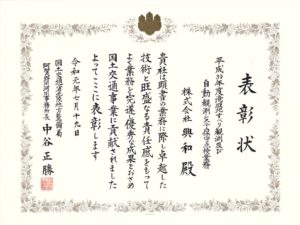 表彰状
平成30年度地すべり観測及び
自動観測システム保守点検業務
株式会社 興和 殿
貴社は頭書の業務に際し卓越した
技術と旺盛なる責任感をもって
よく業務を完遂し優秀な成果をおさめ
国土交通事業に貢献されました
よってここに表彰します
令和元年七月十九日
国土交通省北陸地方整備局
阿賀野川河川事務所長 中谷 正勝